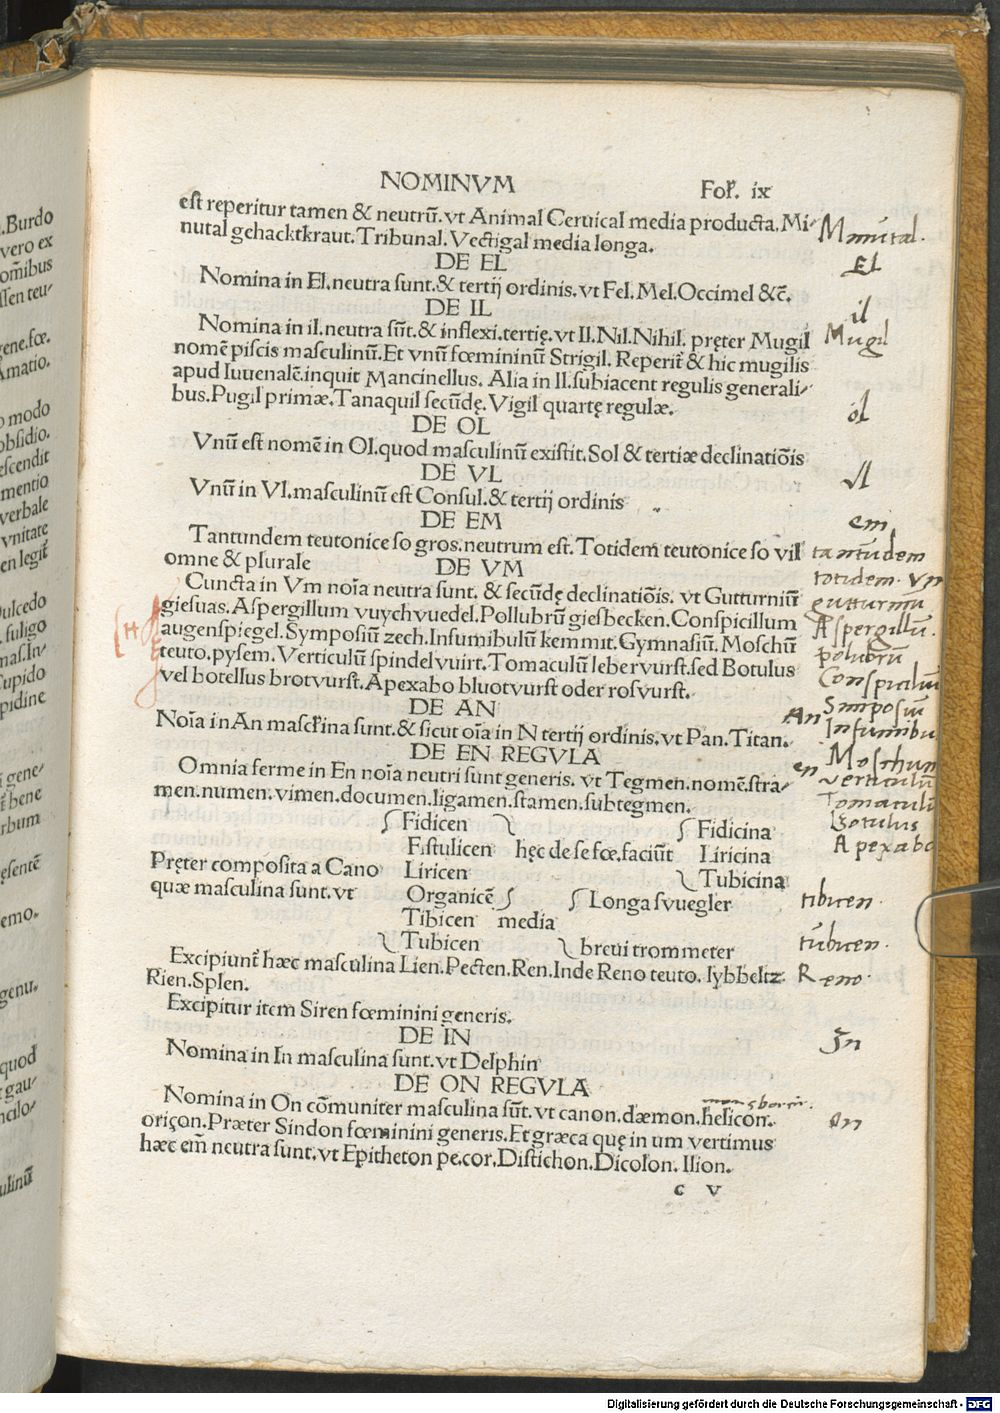 NOMINVM Fol̃. ix
est reperitur tamen & neutrũ. vt Animal Ceruical media producta. Mi⸗
nutal gehacktkraut. Tribunal. Vectigal media longa.
Minutal.
DE EL
El
Nomina in El. neutra sunt. & tertij ordinis. vt Fel. Mel. Occimel &c̃.
DE IL
il
Nomina in il. neutra sũt. & inflexi. tertię. vt Il. Nil. Nihil. pręter Mugil
Mugil
nomẽ piscis masculinũ. Et vnũ fœmininũ Strigil. Reperit̃ & hic mugilis
apud Iuuenalẽ. inquit Mancinellus. Alia in Il. subiacent regulis generali⸗
bus. Pugil primæ. Tanaquil secũdę. Vigil quartę regulæ.
ol
DE OL
Vnũ est nomẽ in Ol. quod masculinũ existit. Sol & tertiæ declinatiõis
DE VL
vl
Vnũ in Vl. masculinũ est Consul. & tertij ordinis
DE EM
em
Tantundem teutonice so gros. neutrum est. Totidem teutonice so vil
tantũdem
omne & plurale
DE VM
totidem. vm
Cuncta in Vm noĩa neutra sunt. & secũdę declinatiõis. vt Gutturniũ
gutturniũ
giesuas. Aspergillum vuychvuedel. Pollubrũ giesbecken. Conspicillum
Aspergillũ.
augenspiegel. Symposiũ zech. Infumibulũ kemmit. Gymnasiũ. Moschũ
polubrũ
teuto. pysem. Verticulũ spindelvuirt. Tomaculũ lebervurst. sed Botulus
Conspicilũ
vel botellus brotvurst. Apexabo bluotvurst oder rosvurst.
Simposiũ
DE AN
An
Infumibu
Noĩa in An mascl̃ina sunt. & sicut oĩa in N tertij ordinis. vt Pan. Titan.
DE EN REGVLA
en
Moschum
Omnia ferme in En noĩa neutri sunt generis. vt Tegmen. nomẽ. stra⸗
verticulũ
men. numen. vimen. documen. ligamen. stamen. subtegmen.
Tomaculũ
Botulus
Apexabo
Fidicen Fidicina
Fistulicen hęc de se fœ. faciũt Liricina
Pręter composita a Cano Liricen Tubicina
quæ masculina sunt. vt Organicẽ Longa svuegler
tibicen.
Tibicen media
Tubicen breui trommeter
tubicen.
Excipiunt̃ hæc masculina Lien. Pecten. Ren. Inde Reno teuto. lybbeltz
Reno
Rien. Splen.
Excipitur item Siren fœminini generis.
DE IN
In
Nomina in In masculina sunt. vt Delphin
DE ON REGVLA
Nomina in On cõmuniter masculina sũt. vt canon. dæmon. helicon.
on
oriçon. Præter Sindon fœminini generis. Et græca quę in um vertimus
hæc em̃ neutra sunt. vt Epitheton pe. cor. Distichon. Dicolon. Ilion.
c v
.Burdo
vero ex
om̃ibus
ssen teu⸗
gene. fœ.
Amatio.
o modo
obsidio.
escendit
mentio
verbale
vnitate
en legit̃
Dulcedo
. fuligo
mas. In⸗
Cupido
pidine
i gene⸗
t̃ bene
rbum
ęsentẽ
emo.
genu.
quod
t gau⸗
ncilo⸗
ulinũ
Digitalisierung gefördert durch die Deutsche Forschungsgemeinschaft - DFG